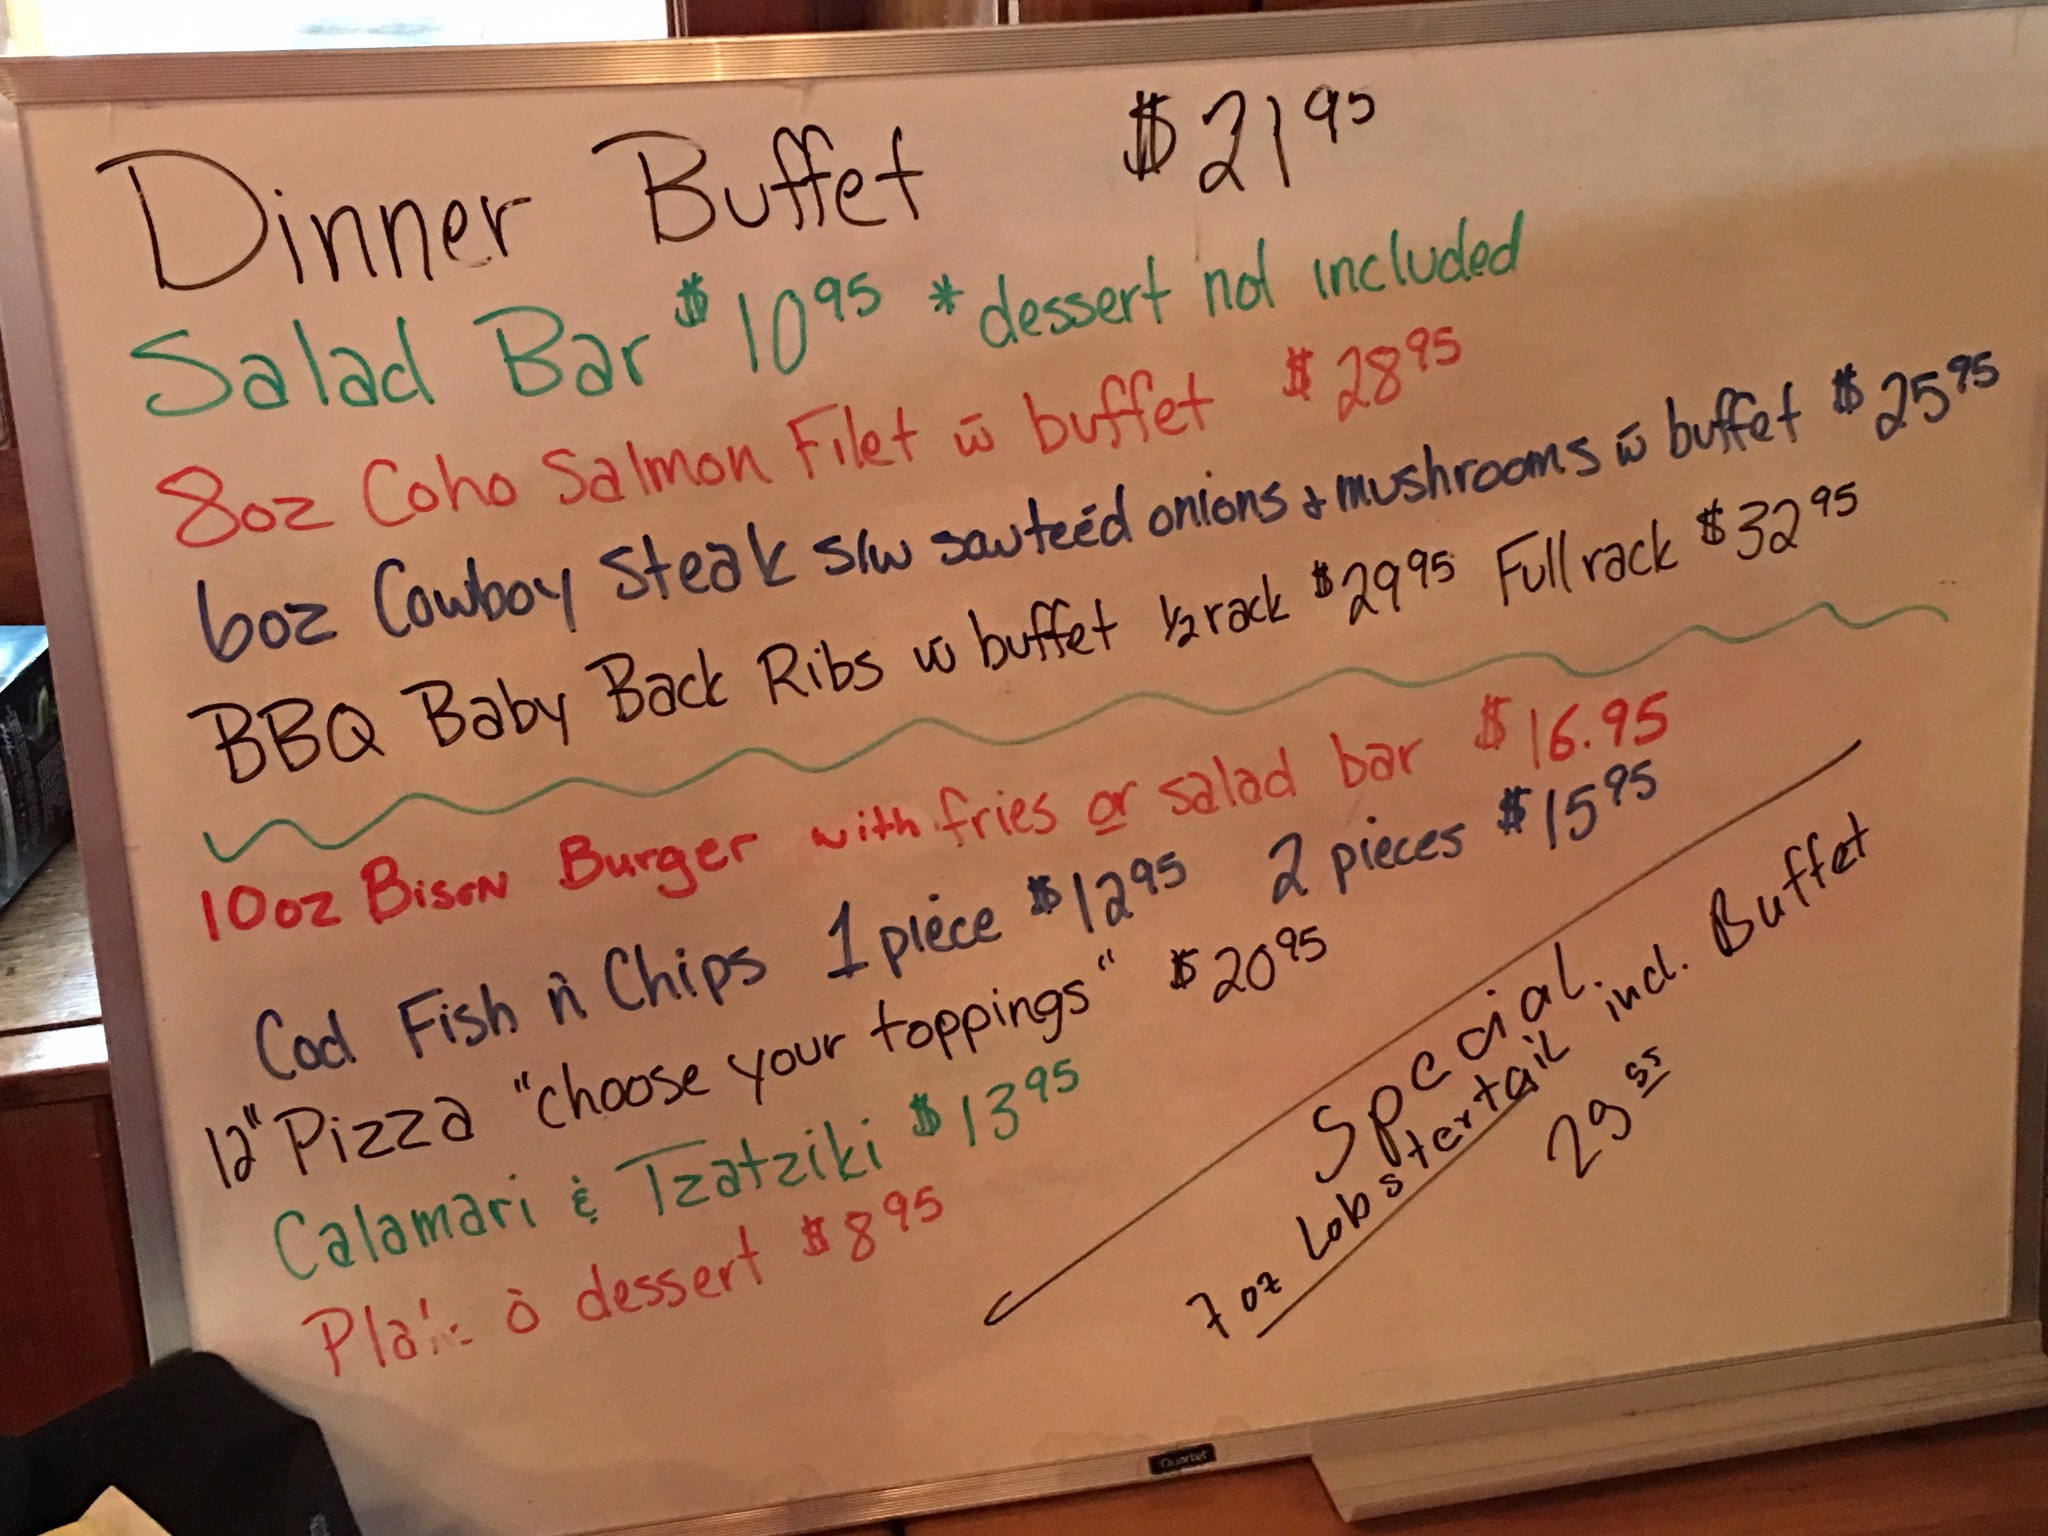 Dinner Buffet $21 95
Salad Bar $10 95 *dessert not included
8oz Coho Salmon Filet w̄ buffet $28 95
6oz Cowboy Steak s/w sautéed onions & mushrooms w̄ buffet $25 95
BBQ Baby Back Ribs w̄ buffet 1/2 rack $29 95 Full rack $32 95
10oz Bison Burger with fries or salad bar $16.95
Cod Fish n Chips 1 piece $12 95 2 pieces $15 95
12" Pizza "choose your toppings" $20 95
Calamari & Tzatziki $13 95
dessert $8 95
Special
7 oz Lobstertail incl. Buffet
29
Quartet